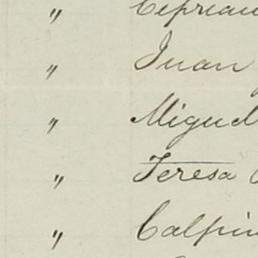 " Ceprian
" Juan
" Miguel
" Teresa
" Calpin